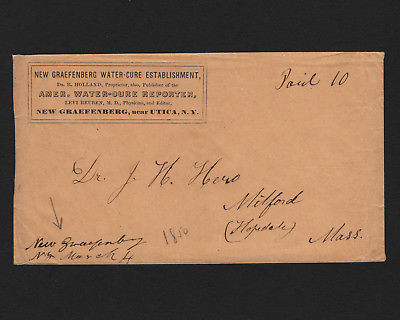 NEW GRAEFENBERG WATER-CURE ESTABLISHMENT,
DR. R. HOLLAND, Proprietor, also, Publisher of the
AMER. WATER-CURE REPORTER,
LEVI REUBEN, M. D., Physician, and Editor,
NEW GRAEFENBERG, near UTICA, N.Y.
Paid 10
Dr. J. H. Hero
Milford
(Hopedale)
Mass.
New Graefenberg
N.Y. March 4
1850